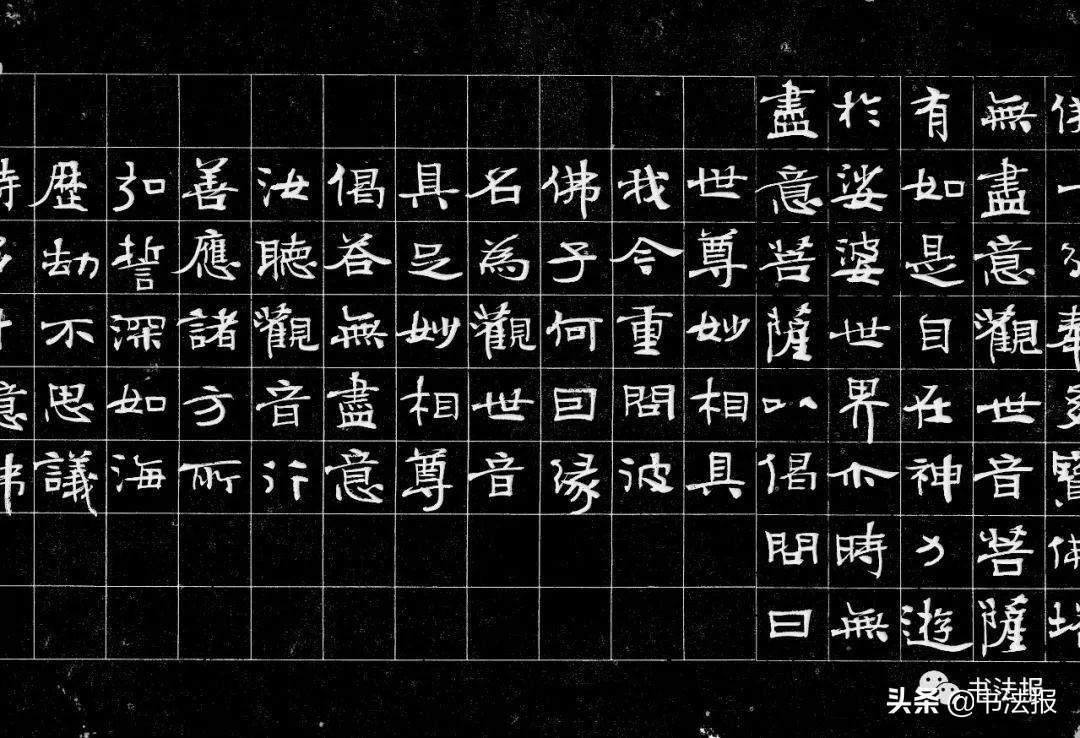 佛一分奉多寶佛塔
無盡意觀世音菩薩
有如是自在神力遊
於娑婆世界尒時無
盡意菩薩以偈問曰
世尊妙相具
我今重問彼
佛子何囙緣
名為觀世音
具足妙相尊
偈荅無盡意
汝聽觀音行
善應諸方所
弘誓深如海
歷劫不思議
书法报
头条@书法报